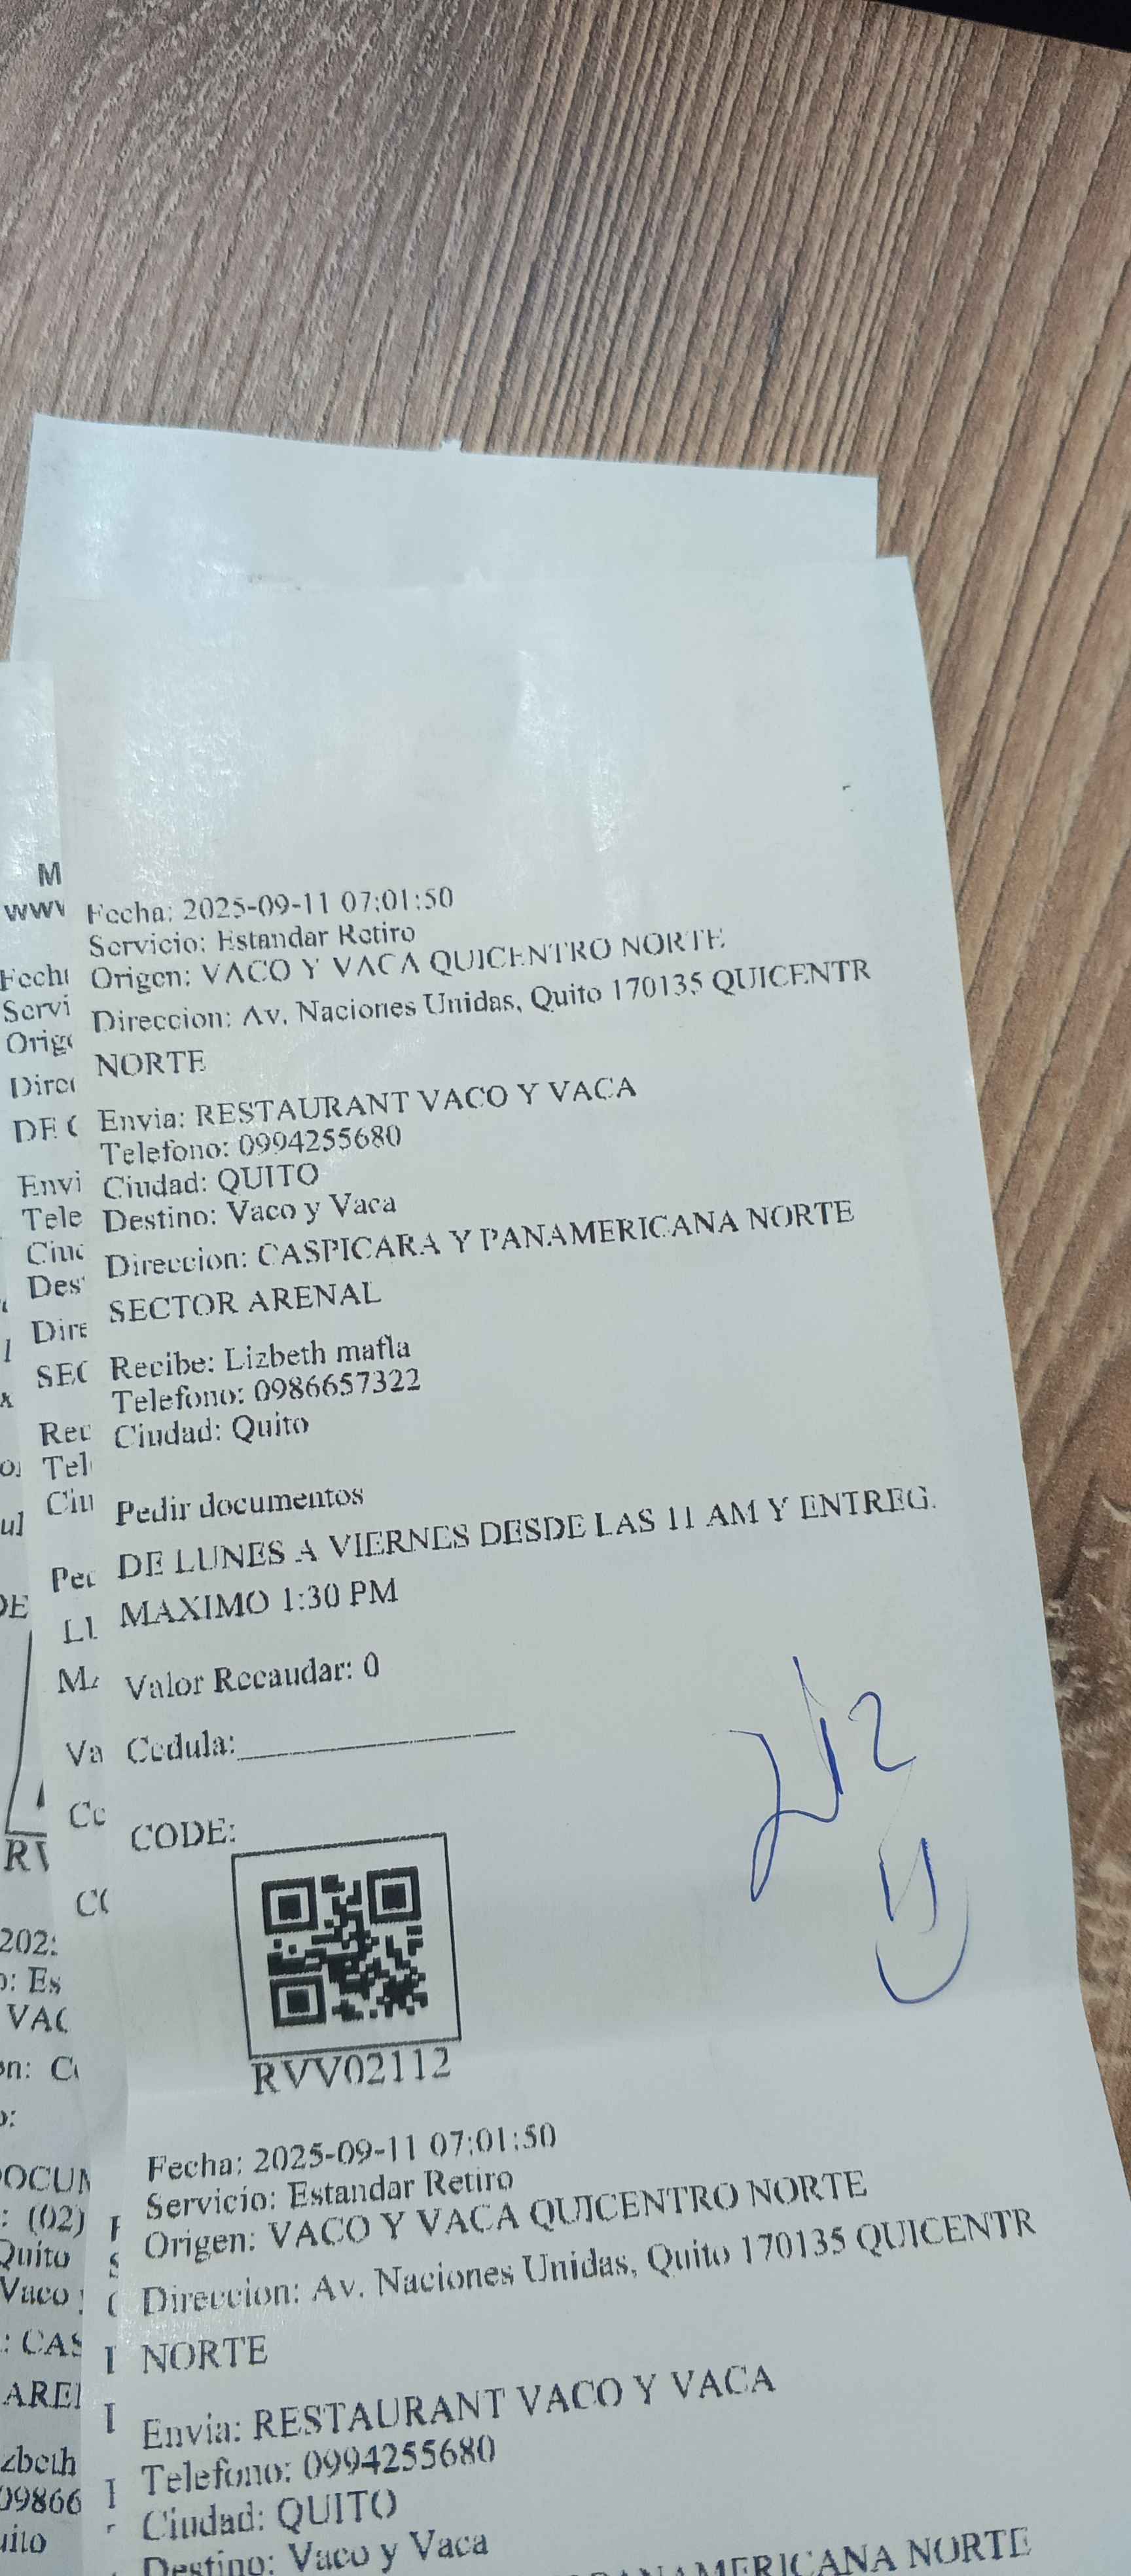 Fecha: 2025-09-11 07:01:50
Servicio: Estandar Retiro
Origen: VACO Y VACA QUICENTRO NORTE
Direccion: Av. Naciones Unidas, Quito 170135 QUICENTR
NORTE
Envia: RESTAURANT VACO Y VACA
Telefono: 0994255680
Ciudad: QUITO
Destino: Vaco y Vaca
Direccion: CASPICARA Y PANAMERICANA NORTE
SECTOR ARENAL
Recibe: Lizbeth mafla
Telefono: 0986657322
Ciudad: Quito
Pedir documentos
DE LUNES A VIERNES DESDE LAS 11 AM Y ENTREG.
MAXIMO 1:30 PM
Valor Recaudar: 0
Cedula:
CODE:
RVV02112
Fecha: 2025-09-11 07:01:50
Servicio: Estandar Retiro
Origen: VACO Y VACA QUICENTRO NORTE
Direccion: Av. Naciones Unidas, Quito 170135 QUICENTR
NORTE
Envia: RESTAURANT VACO Y VACA
Telefono: 0994255680
Ciudad: QUITO
Destino: Vaco y Vaca
PANAMERICANA NORTE